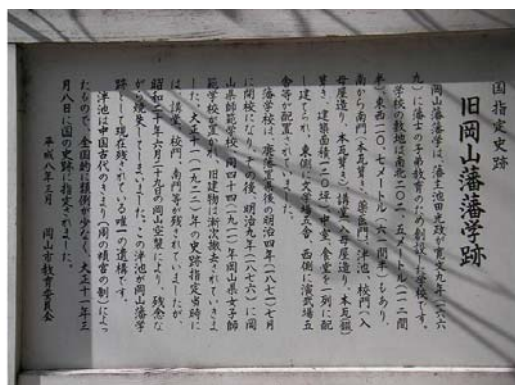 国指定史跡
旧岡山藩藩学跡
岡山藩藩学は、藩主池田光政が寛文九年(一六六
九)に藩士の子弟教育のため創設した学校です。
学校の敷地は南北二〇二.五メートル(一一二間
半)、東西一一〇.七メートル(六一間半)もあり、
南から南門(本瓦葺き、薬医門)、泮池、校門(入
母屋造り、本瓦葺き)、講堂(入母屋造り、本瓦錣
葺き、建築面積一二〇坪)、中室、食堂を一列に配
して建てられ、東側に文学場五舎、西側に演武場五
舎等が配置されていました。
藩学校は、廃藩置県後の明治四年(一八七一)七月
に閉校になり、その後、明治九年(一八七六)に岡
山県師範学校、同四十四(一九一一)年岡山県女子師
範学校が置かれ、旧建物は漸次撤去されていきま
した。大正十一(一九二二)年の史跡指定当時に
は、講堂、校門、南門等が残されていましたが、
昭和二十年六月二十九日の岡山空襲により、残念な
がら焼失してしまいました。この泮池が岡山藩学
跡として現在残されている唯一の遺構です。
泮池は中国古代のきまり(周の頖宮の制)によっ
たもので、全国的に類例が少なく、大正十一年三
月八日に国の史跡に指定されました。
平成八年三月 岡山市教育委員会